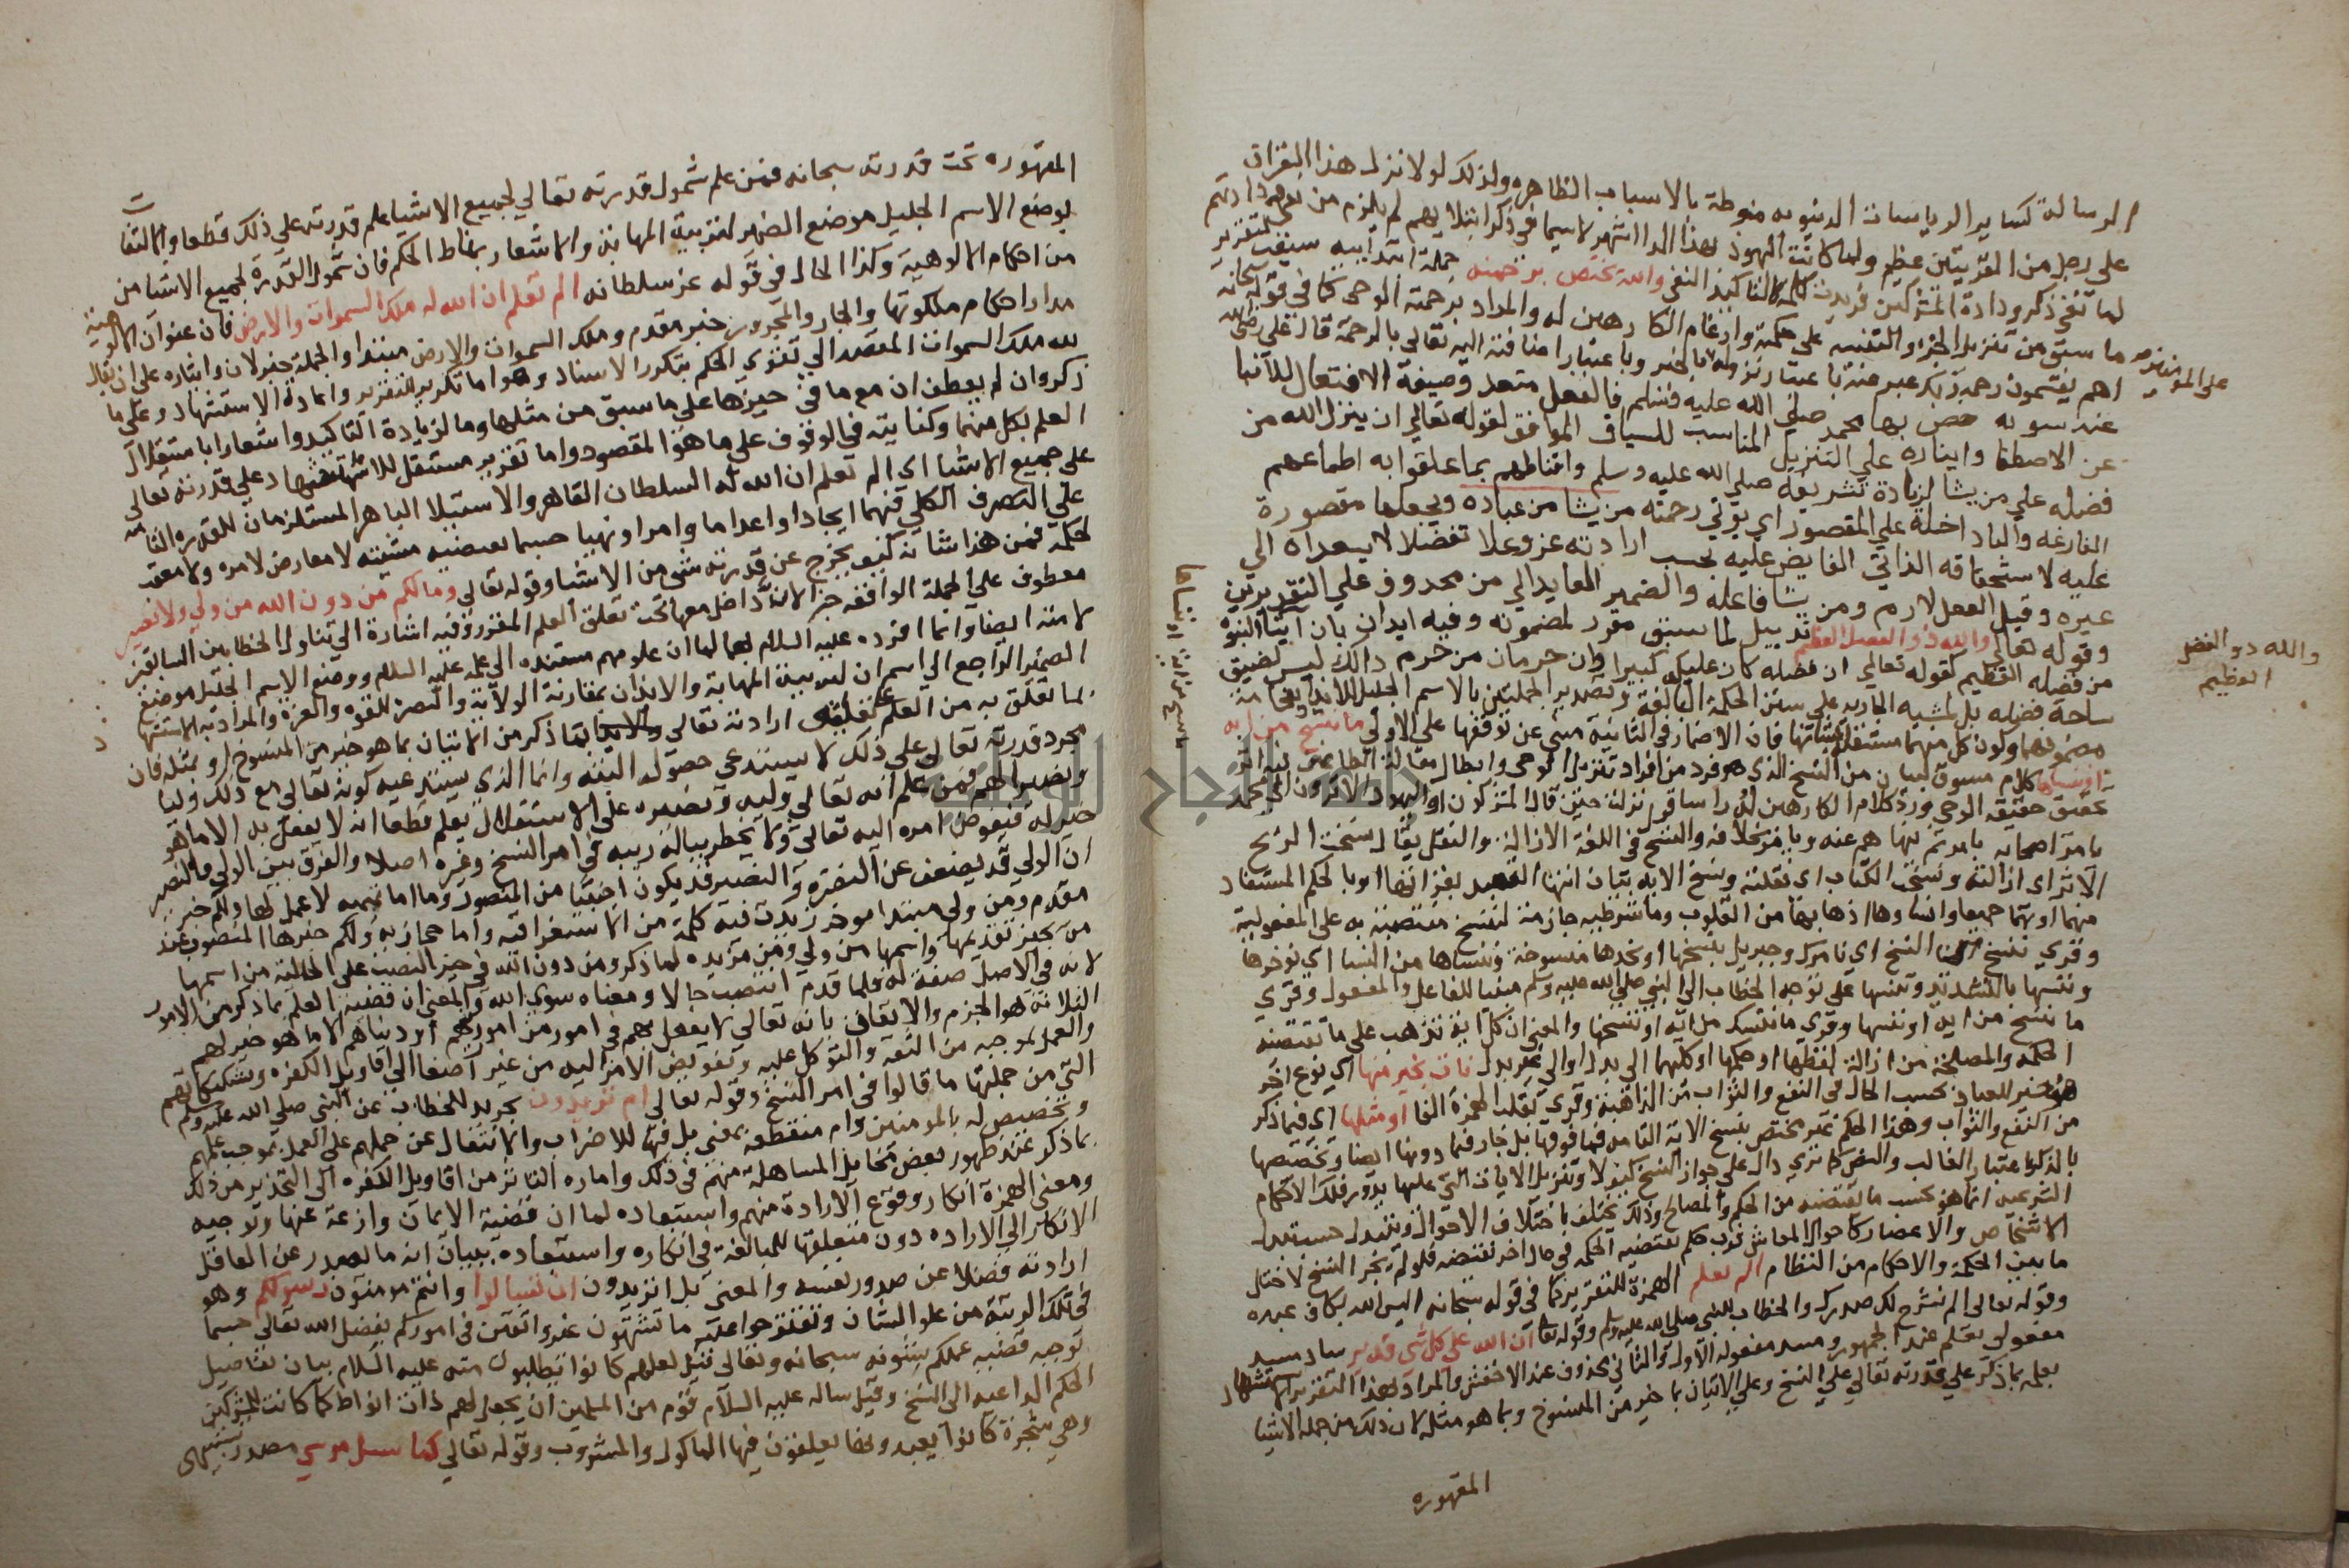 الرسالة كساير الرياسات الدنيويه منوطة بالاسباب الظاهره ولذلك لولا نزل هذا القران
على رجل من القريتين عظيم ولما كانت اليهود بهذا الدا اشهر لاسيما في ذكر ابتلايهم لم يلزم من نفي ودادتهم
لما نفي ذكر ودادة المشركين فزيدت كلمة لا لتاكيد النفي والله يختص برحمته جملة ابتدائيه سيقت لتقرير
ما سبق من تنزيل الخير والتنبيه على حكمته وارغام الكارهين له والمراد برحمته الوحي كما في قوله سبحانه
اهم يقسمون رحمة ربك عبر عنه باعتبار نزوله بالخير وباعتبار اضافته اليه تعالى بالرحمة قال علي رضي الله
عنه بنبوته خص بها محمد صلى الله عليه وسلم فالفعل متعد وصيغة الافتعال للانبا
عن الاصطفا وايثاره على التنزيل المناسب للسياق الموافق لقوله تعالى ان ينزل الله من
فضله على من يشا لزيادة تشريفه صلى الله عليه وسلم واقناطهم بما علقوا به اطماعهم
الفارغه والبا داخلة على المقصور اي يوتي رحمته من يشا من عباده ويجعلها مقصورة
عليه لاستحقاقه الذاتي الفايض عليه بحسب ارادته عز وعلا تفضلا لا يتعداه الى
غيره وقيل الفعل لازم ومن يشا فاعله والضمير العايد الى من محذوف على التقديرين
وقوله تعالى والله ذو الفضل العظيم تذييل لما سبق مقرر لمضمونه وفيه ايذان بان ايتا النبوة
من فضله العظيم كقوله تعالى ان فضله كان عليك كبيرا وان حرمان من حرم ذالك ليس لضيق
ساحة فضله بل لمشيه الجاريه على سنن الحكمة البالغة وتصدير الجملتين بالاسم الجليل للايذان بفخامة
مضمونهما وكون كل منهما مستقلة بشانها فان الاضمار في الثانية منبي عن توقفها على الاولى ما ننسخ من ايه
او ننساها كلام مسوق لبيان سر النسخ الذي هو فرد من افراد تنزيل الوحي وابطال مقالة الطاعنين فيه اثر
تحقيق حقيقة الوحي ورد كلام الكارهين له راسا قيل نزلت حين قال المشركون او اليهود الا ترون الى محمد
يامر اصحابه بامر ثم ينهاهم عنه ويامر بخلافه والنسخ في اللغة الازالة والنقل يقال نسخت الريح
الاثر اي ازالته ونسخت الكتاب اي نقلته ونسخ الاية بيان انتها التعبد بقراتها او بالحكم المستفاد
منها او بهما جميعا وانساوها اذهابها من القلوب وما شرطيه جازمة لننسخ منتصبة به على المفعولية
وقري ننسخ من انسخ اي نامرك وجبريل بنسخها او نجدها منسوخة وننساها من النسا اي نوخرها
وننسها بالتشديد وتنسها على توجه الخطاب الى النبي صلى الله عليه وسلم مبنيا للفاعل والمفعول وقري
ما ننسخ من اية او ننسها وقري ما ننسك من اية او ننسخها والمعنى ان كل اية نذهب على ما تقتضيه
الحكمة والمصلحة من ازالة لفظها او حكمها او كليهما الى بدل او الى غير بدل نات بخير منها اي نوع اخر
هو خير للعباد بحسب الحال في النفع والثواب من الذاهبة وقري بقلب الهمزة الفا او مثلها اي فيما ذكر
من النفع والثواب وهذا الحكم غير مختص بنسخ الاية التامة فما فوقها بل جار فيما دونها ايضا وتخصيصها
بالذكر باعتبار الغالب والنص كما تري دال على جواز النسخ كيف لا وتنزيل الايات التي عليها يدور فلك الاحكام
الشرعيه انما هو بحسب ما تقتضيه من الحكم والمصالح وذلك يختلف باختلاف الاحوال ويتبدل حسب تبدل
الاشخاص والاعصار كاحوال المعاش فرب حكم تقتضيه الحكمة في حال اخر نقيضه فلو لم يجز النسخ لاختل
ما بين الحكمة والاحكام من النظام الم تعلم الهمزة للتقرير كما في قوله سبحانه اليس الله بكاف عبده
وقوله تعالى الم نشرح لك صدرك والخطاب للنبي صلى الله عليه وسلم وقوله تعا ان الله على كل شي قدير ساد مسد
مفعولي تعلم عند الجمهور ومسد مفعوله الاول والثاني محذوف عند الاخفش والمراد بهذا التقرير الاستشهاد
بعلمه بما ذكر على قدرته تعالى على النسخ وعلى الاتيان بما خير من المنسوخ وبما هو مثله لان ذلك من جملة الاشيا
المقهوره
على المومنين
والله ذو الفضل
العظيم
ما ننسخ من اية او ننساها
المقهوره تحت قدرته سبحانه فمن علم شمول قدرته تعالى لجميع الاشيا علم قدرته على ذلك قطعا والالتفات
بوضع الاسم الجليل موضع الضمير لتربية المهابة والاشعار بمناط الحكم فان شمول القدرة لجميع الاشيا من
من احكام الالوهية وكذا الحال في قوله عز سلطانه الم تعلم ان الله له ملك السموات والارض فان عنوان الالوهية
مدار احكام ملكوتها والجار والمجرور خبر مقدم وملك السموات والارض مبتدا والجملة خبر لان وايثاره على ان يقال
لله ملك السموات المقصد الى تقوي الحكم بتكرر الاسناد وهو اما تكرير للتقرير واعادة الاستشهاد وعلى ما
ذكر وان لم يعطف ان مع ما في حيزها على ما سبق من مثلها وما لزيادة التاكيد واشعارا باستقلال
العلم بكل منهما وكفايته في الوقوف على ما هو المقصود واما تقرير مستقل للاستشهاد على قدرته تعالى
على جميع الاشيا اي الم تعلم ان الله له السلطان القاهر والاستيلا الباهر المستلزمان للقدره التامه
على التصرف الكلي فيهما ايجادا واعداما وامرا ونهيا حسبما تقتضيه مشيته لا معارض لامره ولا معقب
لحكمه فمن هذا شانه كيف يخرج عن قدرته شي من الاشيا وقوله تعالى ومالكم من دون الله من ولي ولا نصير
معطوف على الجملة الواقعه خبرا لان داخل معها تحت تعلق العلم المقرر وفيه اشارة الى تناول الخطابين السابقين
لامته ايضا وانما افرده عليه السلام بهما لما ان علومهم مستنده الى علمه عليه السلام ووضع الاسم الجليل موضع
الضمير الراجع الى اسم ان لتربية المهابة والايذان بمقارنة الولاية والنصرة للقوه والعزه والمراد به الاستشهاد
بما تعلق به من العلم على تعلق ارادته تعالى بما ذكر من الاتيان بما هو خير من المنسوخ او بمثله فان
مجرد قدرته تعالى على ذلك لا يستدعي حصوله البتة وانما الذي يستدعيه كونه تعالى مع ذلك وليا
ونصيرا لهم فمن علم انه تعالى وليه ونصيره على الاستقلال يعلم قطعا انه لا يفعل به الا ما هو
خير له فيفوض امره اليه تعالى ولا يخطر بباله ريبه في امر النسخ وغيره اصلا والفرق بين الولي والنصير
ان الولي قد يضعف عن النصرة والنصير قد يكون اجنبيا من المنصور وما اما تميميه لا عمل لها ولكم خبر
مقدم ومن ولي مبتدا موخر زيدت فيه كلمة من للاستغراق واما حجازيه ولكم خبرها المنصوب عند
من يجيز تقديمه واسمها من ولي ومن مزيده لما ذكر ومن دون الله في حيز النصب على الحالية من اسمها
لانه في الاصل صفة له فلما قدم انتصب حالا ومعناه سوى الله والمعنى ان قضية العلم بما ذكر من الامور
الثلاثة هو الجزم والايقان بانه تعالى لا يفعل بهم في امور من امور دينهم او دنياهم الا ما هو خير لهم
والعمل بموجبه من الثقة والتوكل عليه وتفويض الامر اليه من غير اصغا الى اقاويل الكفره وتشكيكاتهم
التي من جملتها ما قالوا في امر النسخ وقوله تعالى ام تريدون تجريد للخطاب عن النبي صلى الله عليه وسلم
وتخصيص له بالمومنين وام منقطعة بمعنى بل فيها للاضراب والانتقال عن حملهم على العمل بموجب علمهم
بما ذكر عند ظهور بعض مخايل المساهلة منهم في ذلك واماره التاثر من اقاويل الكفره الى التحذير من ذلك
ومعنى الهمزة انكار وقوع الارادة منهم واستبعاده لما ان قضية الايمان وازعة عنها وتوجيه
الانكار الى الاراده دون متعلقها للمبالغة في انكاره واستبعاده ببيان انه مما لا يصدر عن العاقل
ارادته فضلا عن صدور نفسه والمعنى بل اتريدون ان تسالوا وانتم مومنون رسولكم وهو
في تلك الرتبة من علو الشان وتقترحوا عليه ما تشتهون غير واثقين في اموركم بفضل الله تعالى حسبما
توجبه قضيه علمكم بشونه سبحانه وتعالى قيل لعلهم كانوا يطلبون منه عليه السلام بيان تفاصيل
الحكم الداعيه الى النسخ وقيل ساله عليه السلام قوم من المسلمين ان يجعل لهم ذات انواط كما كانت للمشركين
وهي شجرة كانوا يعبدونها يعلقون فيها الماكول والمشروب وقوله تعالى كما سيل موسى مصدر تشبيهي